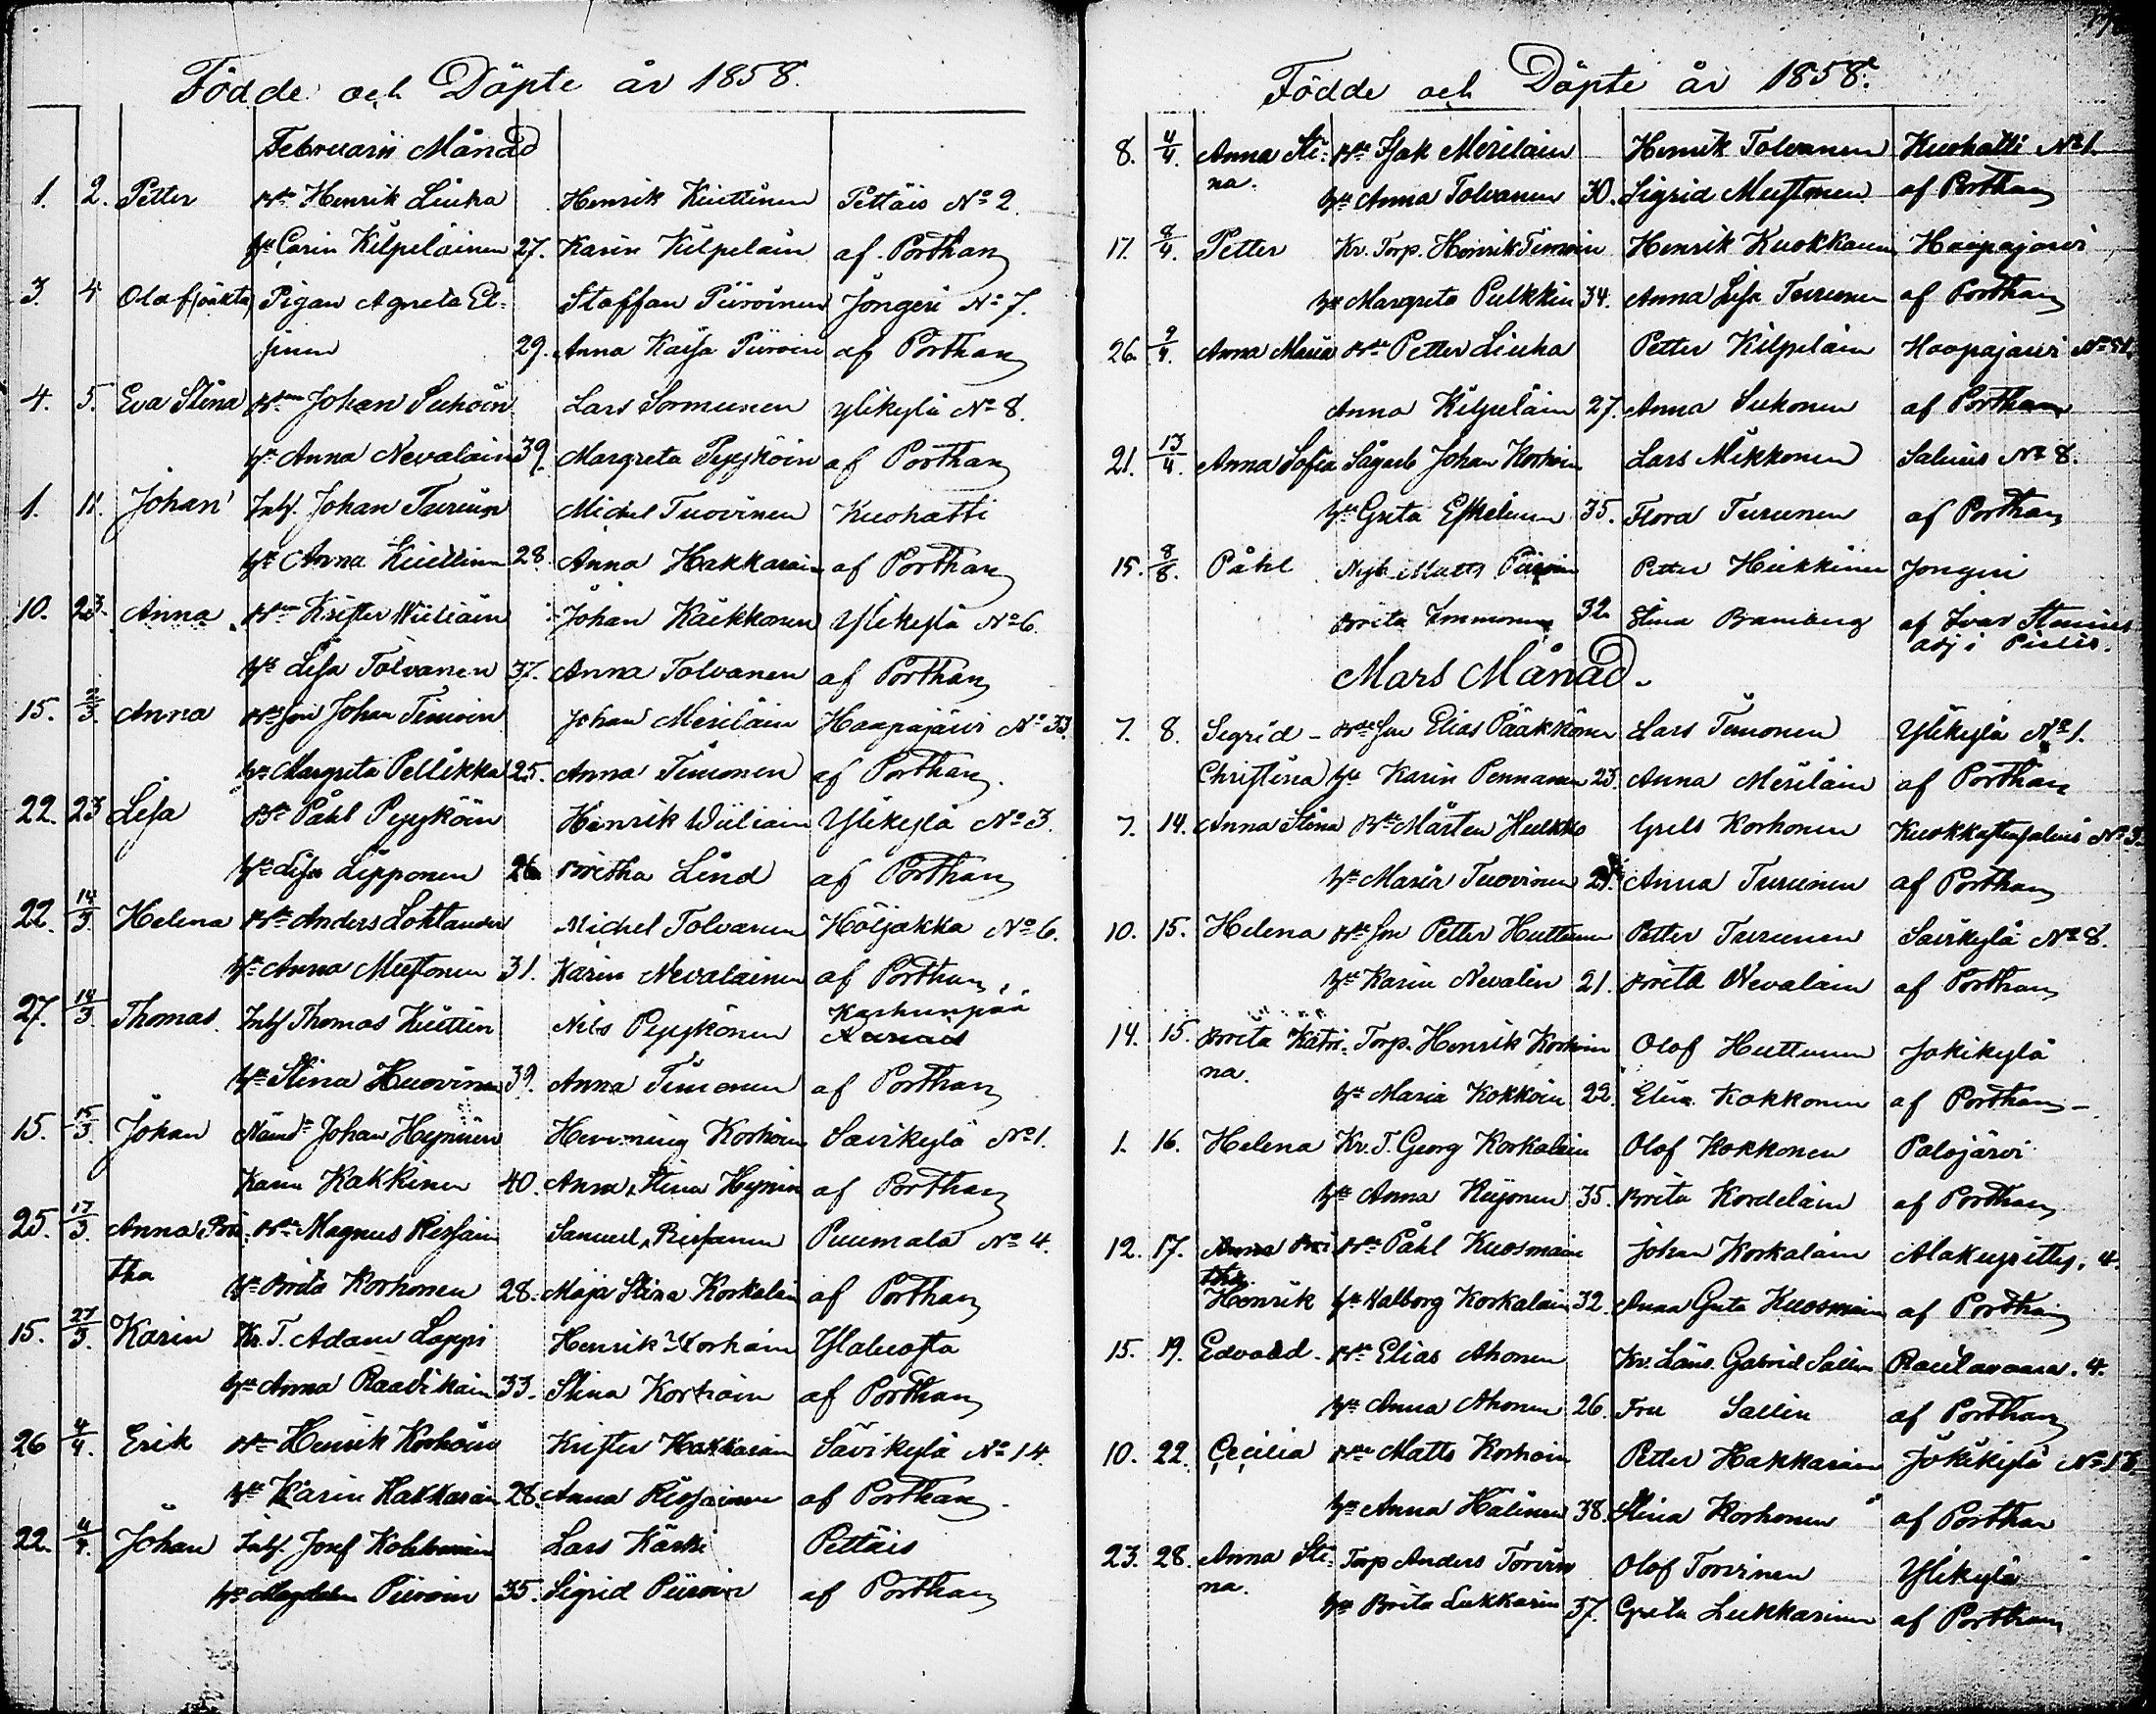 Födde och Döpte år 1858.
Februarii Månad
1. 2. Petter Bde Henrik Liuha Henrik Kiuttinen Pettäis No 2.
hu Carin Kilpeläinen 27. Karin Kilpeläin af Porthan
3. 4 Olof (oäkta) Pigan Agneta El= Staffan Piiroinen Jongeri No 7.
29. Anna Kaisa Piiroin af Porthan
4. 5. Eva Stina Johan Suhoin Lars Sormunen Ylikylä No 8.
hu Anna Nevalain 39. Margreta Pyykköin af Porthan
1. 11. Johan Inh. Johan Turuin Michel Tuovinen Kuohatti
hu Anna Kiuttinen 28. Anna Hakkarain af Porthan
10. 23. Anna Krister Wiiliäin Johan Kaikkonen Ylikylä No 6.
hu Lisa Tolvanen 37. Anna Tolvanen af Porthan
15. 2/3. Anna Johan Timoin Johan Meriläin Haapajärvi No 33.
hu Margreta Pellikka 25. Anna Timonen af Porthan.
22. 23 Lisa Bde Påhl Pyyköin Henrik Wiiliäin Ylikylä No 3.
hu Lisa Lipponen 26 Britha Lind af Porthan
22. 14/3. Helena Bde Anders Lohlander Michel Tolvanen Höljäkkä No 6.
hu Anna Mustonen 31. Karin Nevalainen af Porthan
27. 14/3. Thomas. Inh Thomas Kiuttin Nils Pyykönen Karhunpää
hu Stina Huovinen 39. Anna Timonen af Porthan
15. 15/3. Johan Nämd. Johan Hynnin Henning Korhoin Savikylä No 1.
Karin Kakkinen 40. Anna Stina Hynnin af Porthan
25. 17/3. Anna Bri= Bde Magnus Rissain Samuel Rissanen Puumala No 4.
tha hu Brita Korhonen 28. Maja Stina Korkalain af Porthan
15. 27/3. Karin Kr. T. Adam Lappi Henrik Korhoin Ylaluosta
hu Anna Raatikain 33. Stina Korhoin af Porthan
26 4/4. Erik Bde Henrik Korhoin Krister Hakkarain Savikylä No 14.
hu Karin Hakkarain 28. Anna Rissainen af Porthan.
22. 4/4. Johan Inh. Josef Lars Kärki Pettäis
hu Magdalena Piiroin 35. Sigrid Piiroin af Porthan
Födde och Döpte år 1858.
8. 4/4. Anna Sti= Bde Isak Meriläin Henrik Tolvanen Kuohatti No 1.
na. hu Anna Tolvanen 30. Sigrid Mustonen af Porthan
17. 8/4. Petter Kr. Torp. Henrik Timoin Henrik Kuokkanen Haapajärvi
hu Margreta Pulkkin 34. Anna Lisa Turunen af Porthan
26. 9/4. Anna Maria Bde Petter Liuha Petter Kilpeläin Haapajärvi
Anna Kilpeläin 27. Anna Suhonen af Porthan
21. 13/4. Anna Sofia Johan Korhoin Lars Mikkonen Salmis No 8.
hu Greta Eskelinen 35. Flora Turunen af Porthan
15. 8/8. Påhl Nyb. Matts Piiroin Petter Heikkinen Jongeri
Brita Immonen 32. Stina Bramberg af Ivar Stenius
adj i Pielis.
Mars Månad.
7. 8. Sigrid - Bde son Elias Pääkkönen Lars Timonen Ylikylä No 1.
Christina hu Karin Pennanen 23. Anna Meriläin af Porthan
7. 14. Anna Stina Bde Mårten Hulkko Grels Korhonen Kuokkastensalmi No 3.
hu Maria Tuovinen Anna Turunen af Porthan
10. 15. Helena Bde son Petter Huttunen Petter Turunen Savikylä No 8.
hu Karin Nevalin 21. Brita Nevalain af Porthan
14. 15. Brita Katri= Torp. Henrik Korhoin Olof Huttunen Jokikylä
na. hu Maria Kokköin 22. Elin Kokkonen af Porthan -
1. 16. Helena Kr. T. Georg Korkalain Olof Kokkonen Palojärvi
hu Anna Kujonen 35. Brita Kordelain af Porthan
12. 17. Anna Bri Bde Påhl Kuosmain Johan Korkalain 4.
tha.
Henrik hu Walborg Korkalain 32. Anna Greta Kuosmain af Porthan
15. 19. Edvard. Bde Elias Ahonen Kr. Läns. Gabriel Sallin Rautavaara. 4.
hu Anna Ahonen 26. Fru Sallin af Porthan
10. 22. Cecilia Bde Matts Korhoin Petter Hakkarain Jokikylä
hu Anna Halinen 38. Stina Korhonen af Porthan
23. 28. Anna Sti= Torp Anders Torvin Olof Torvinen Ylikylä
na. hu Brita Lukkarin 37. Greta Lukkarinen af Porthan